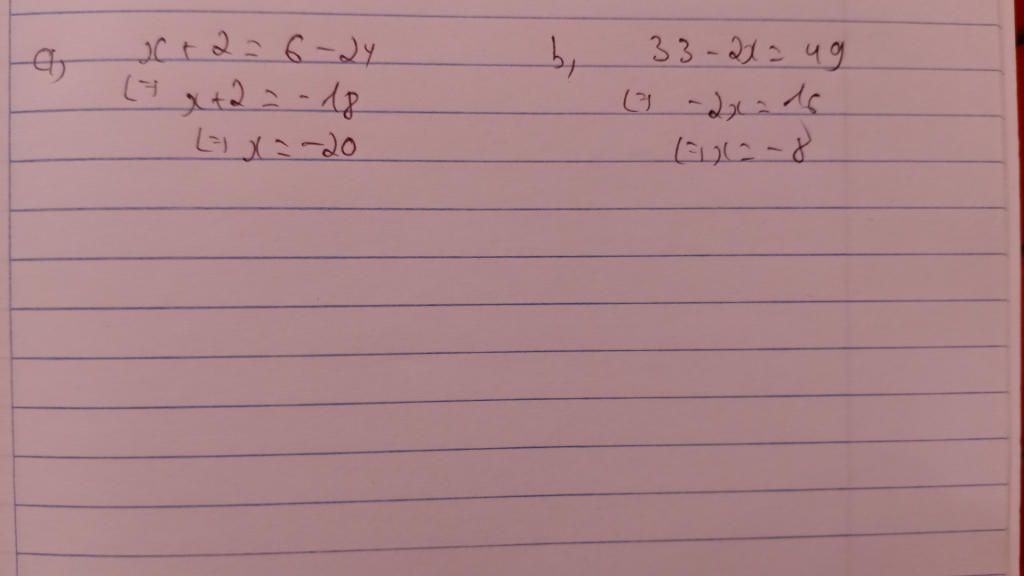 a, x + 2 = 6 - 24
<=> x + 2 = - 18
<=> x = - 20
b, 33 - 2x = 49
<=> - 2x = 16
<=> x = - 8